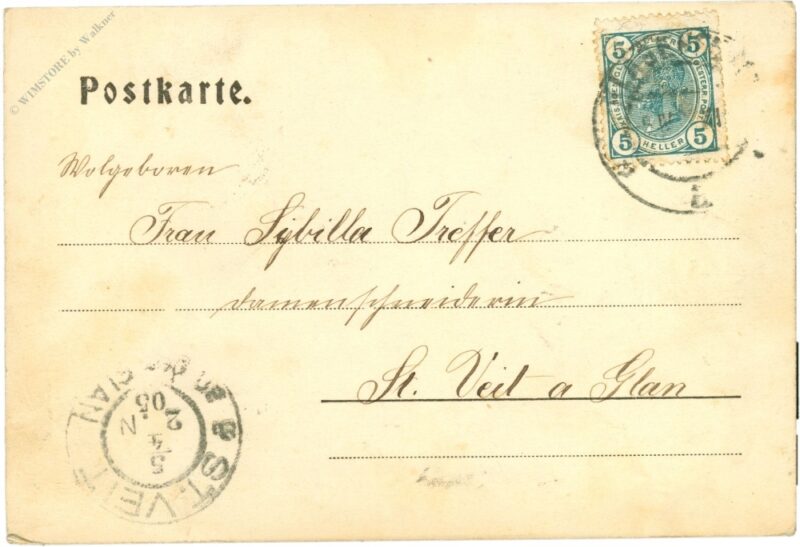 © WIMSTORE by Walkner
Postkarte.
5 5
5 HELLER 5
Wolgeboren
Frau Sybilla Treffer
Damenschneiderin
St. Veit a Glan
ST. VEIT
5
14
2 N
05